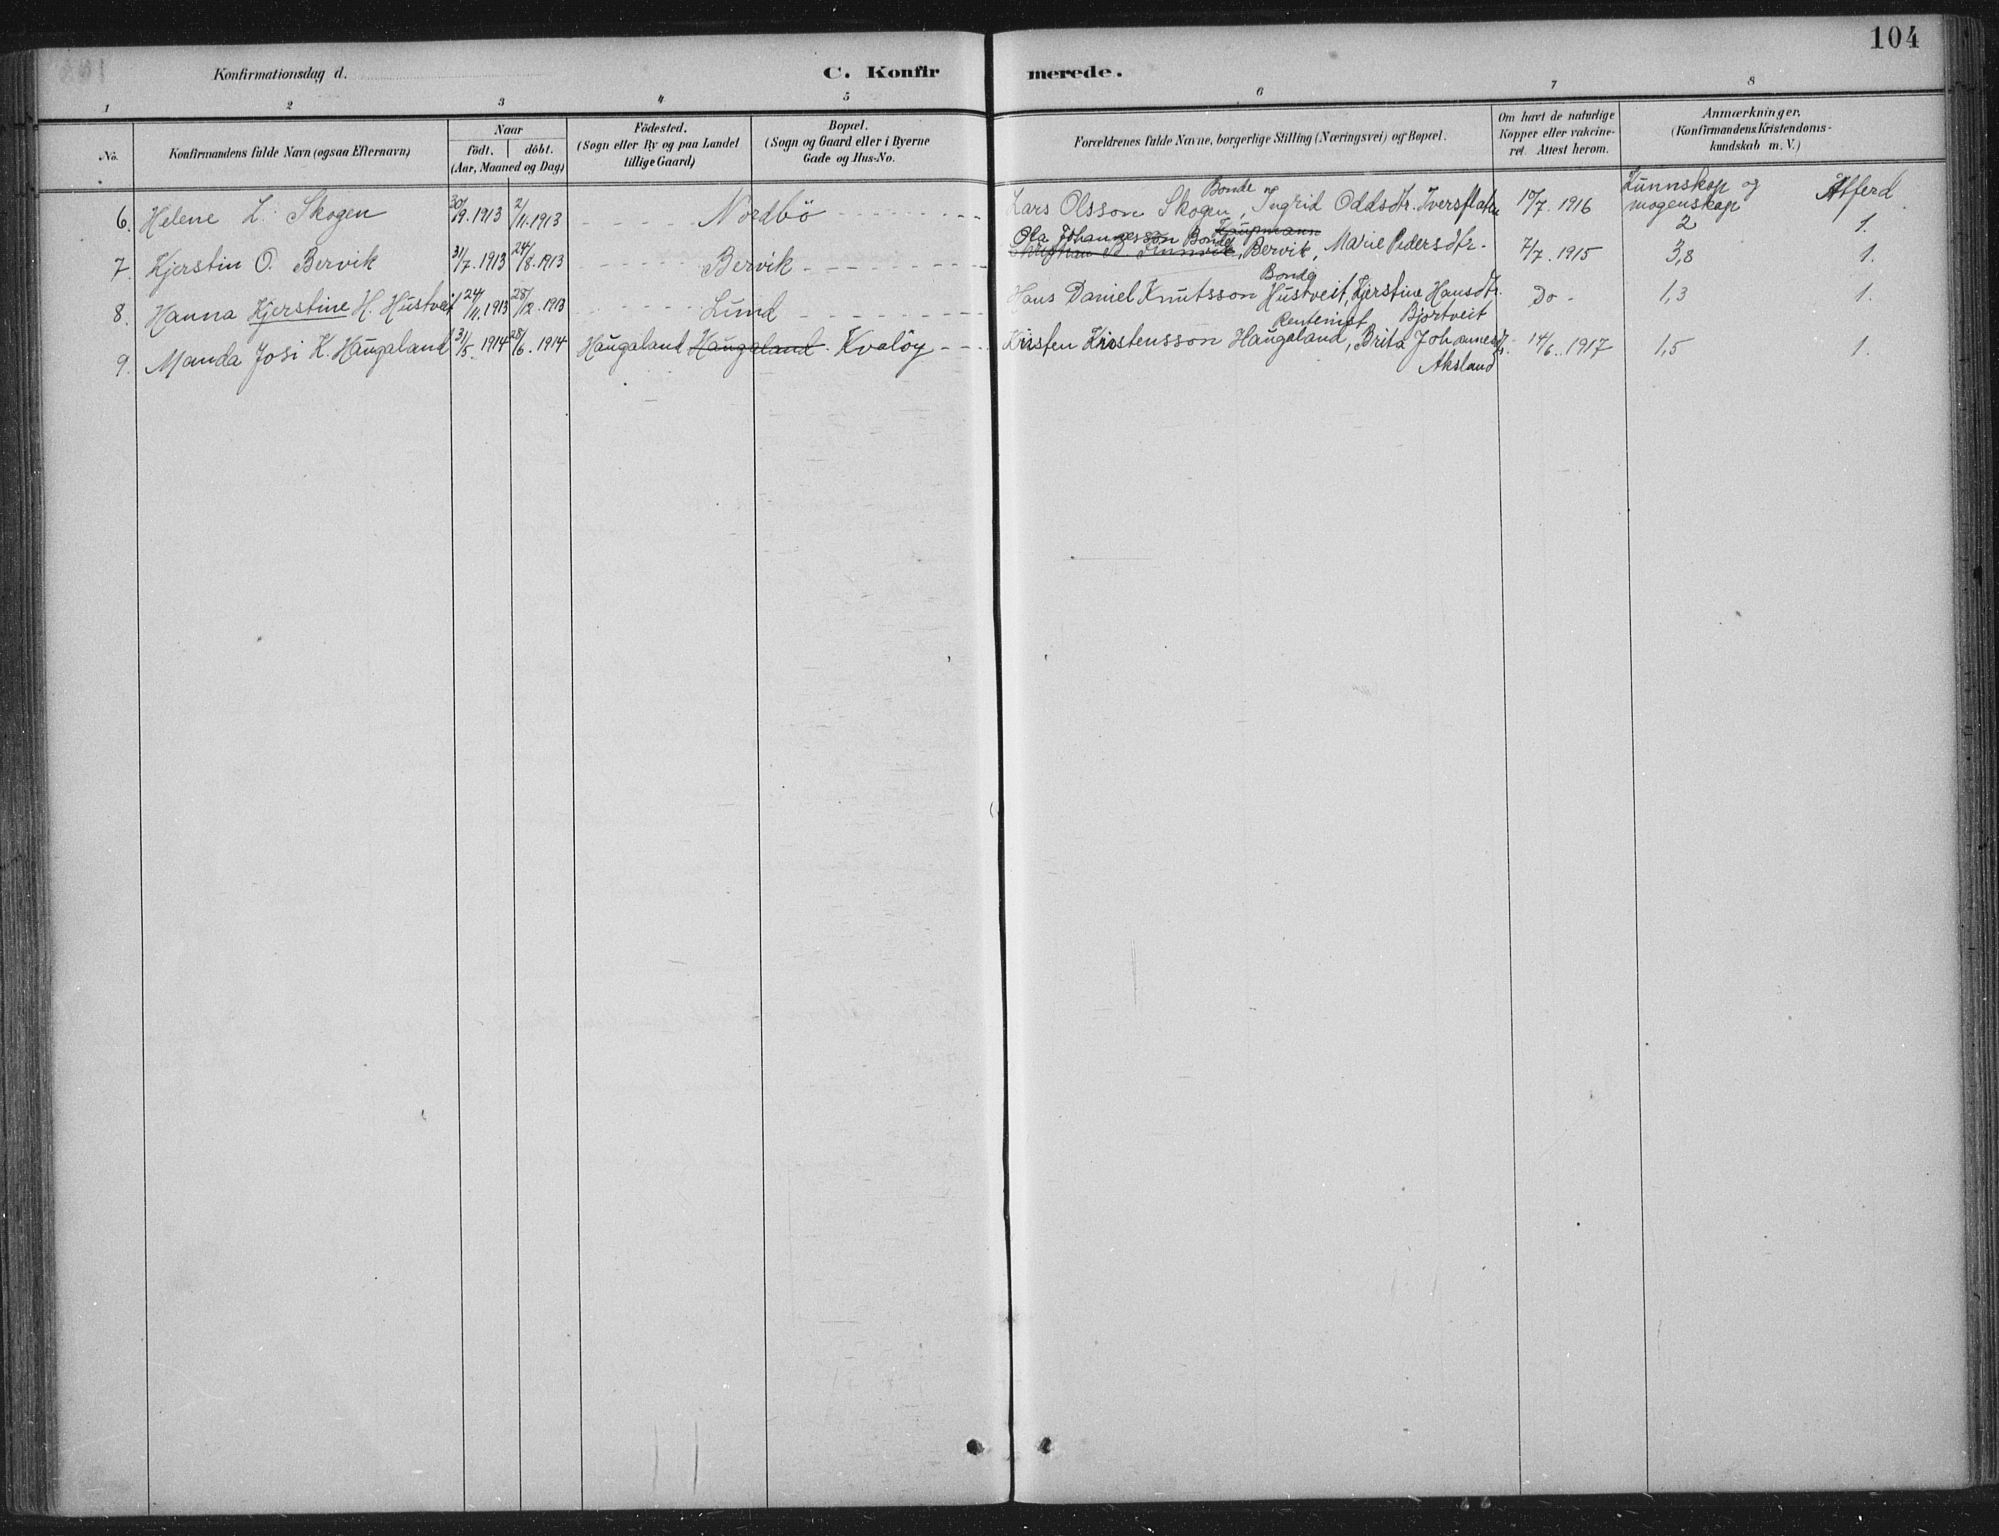 104
Konfirmationsdag d.
C. Konfirmerede.
1 2 3 4 5 6 7 8
No.
Konfirmandens fulde Navn (ogsaa Efternavn)
Naar
födt. döbt.
(Aar, Maaned og Dag)
Födested.
(Sogn eller By og paa Landet
tillige Gaard)
Bopæl.
(Sogn og Gaard eller i Byerne
Gade og Hus-No.
Forældrenes fulde Navne, borgerlige Stilling (Næringsvei) og Bopæl.
Om havt de naturlige
Kopper eller vakcine-
ret. Attest herom.
Anmærkninger.
(Konfirmandens Kristendoms-
kundskab m. V.)
Kunnskap og mogenskap Åtferd
6. Helene L. Skogen 30/9. 1913 2/11. 1913 Nordbö Lars Olsson Skogen, Bonde og Ingrid Oddsdtr. Iversflaten 10/7. 1916 2 1.
7. Kjerstin O. Bervik 31/7. 1913 24/8. 1913 Bervik Ola Johannesson Bonde Kaupmann Bervik, Marie Pedersdtr. 7/7. 1915 3,8 1.
8. Hanna Kjerstine H. Hustveit 24/11. 1913 28/12. 1913 Lund Hans Daniel Knutsson Bonde Hustveit, Kjerstine Hansdtr. Bjortveit Do - 1,3 1.
9. Manda Josi K. Haugaland 31/5. 1914 28/6. 1914 Haugaland Haugaland Kvaløy Kristen Kristensson Rentenist Haugaland, Brita Johannesdtr. Aksland 14/6. 1917 1,5 1.